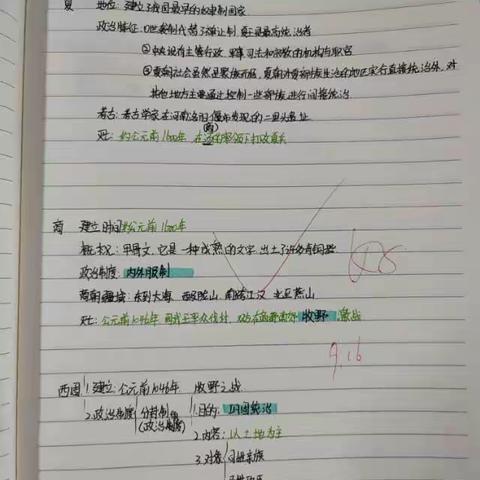 夏 地位：建立了我国最早的奴隶制国家
政治特征：①世袭制代替了禅让制，夏王是最高统治者
②中央设有主管行政、军事、司法和宗教的机构与职官
③夏朝社会虽然是聚族而居，夏朝对夏部族生活的地区实行直接统治外，对
其他地方主要通过控制一些部族进行间接统治
考古：考古学家在河南洛阳偃师发现的二里头遗址
灭亡：约公元前1600年，在汤的率领下打败夏
商 建立时间：约公元前1600年
概况：甲骨文，它是一种成熟的文字，出土了许多青铜器
政治制度：内外服制
商朝疆域：东到大海 西及陇山 南跨江汉 北至燕山
灭亡：公元前1046年 周武王率众伐纣，双方在商郊 牧野 激战
9.16
西周 1.建立：公元前1046年 牧野之战
2.政治制度 分封制 1.目的：巩固统治
(政治制度)
2.内容：以土地为主
3.对象 同姓亲族